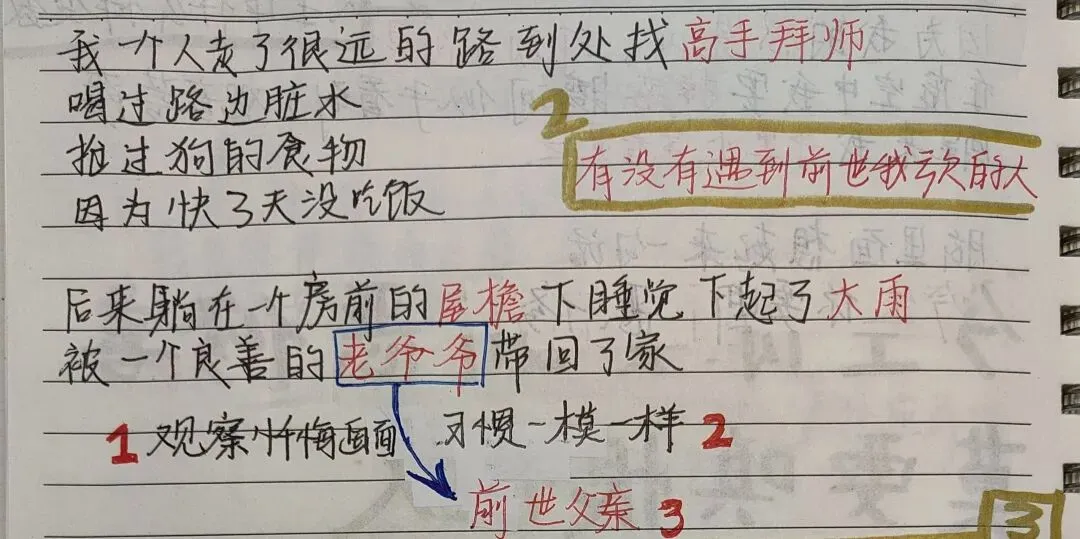 我一个人走了很远的路到处找高手拜师
喝过路边脏水
抢过狗的食物
2
因为快3天没吃饭
有没有遇到前世我欠的人
后来躺在一个房前的屋檐下睡觉下起了大雨
被一个良善的老爷爷带回了家
1 观察忏悔画面 习惯一模一样 2
前世父亲 3
3